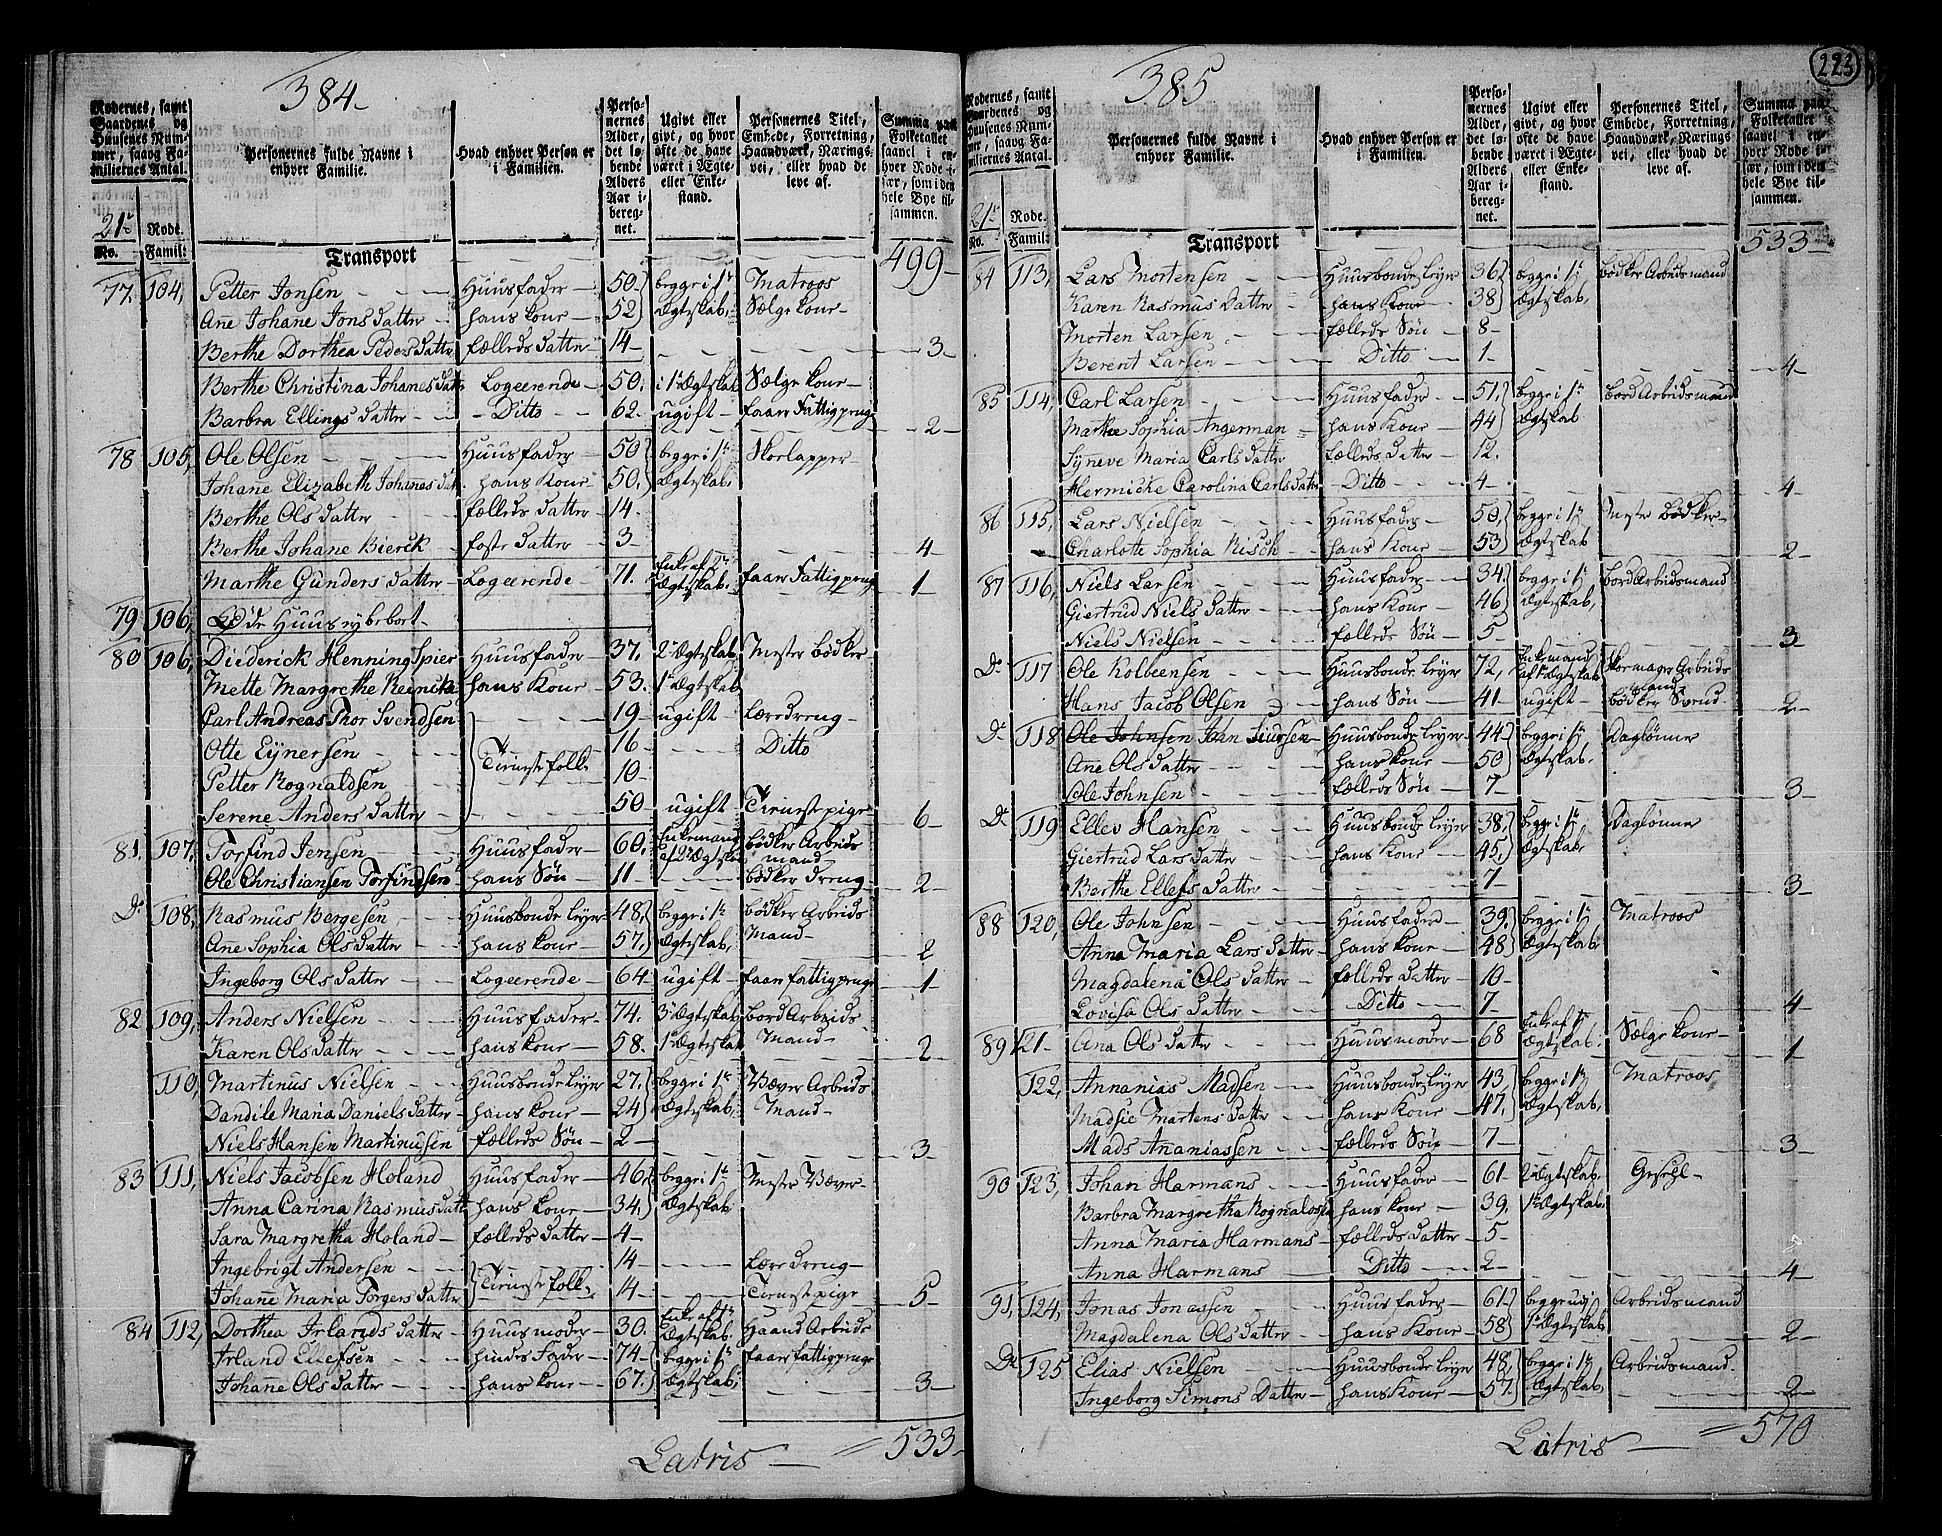 223
384
Rodernes, samt Gaardenes og Huusenes Nummer, saavog Familiernes Antal.
Personernes fulde Navne i enhver Familie.
Hvad enhver Person er i Familien.
Personernes Alder, det løbende Alders Aar iberegnet.
Ugivt eller givt, og hvor ofte de have været i Ægte- eller Enkestand.
Personernes Titel, Embede, Forretning, Haandværk, Næringsvei, eller hvad de leve af.
Summa paa Folketallet saavel i enhver Rode især, som i den hele Bye tilsammen.
21r Rode.
No. Famil:
Transport 499
77. 104, Petter Jonsen Huusfader 50 begge i 1r Matroos
Ane Johane Jons Datter hans kone 52 Ægteskab, Sælge kone
Berthe Dorthea Peders Datter fælleds Datter 14 3
Berthe Christina Johanes Datter Logeerende 50, i 1r Ægtskab Sælge kone
Barbra Ellings Datter Ditto 62. ugift faaer Fattigpenge 2
78 105, Ole Olsen Huusfader 50 begge i 1r Skoelapper
Johane Elizabeth Johanes Dat. hans Kone 50, Ægtskab,
Berthe Ols Datter fælleds Datter 14
Berthe Johane Bierck foster Datter 3 4
Marthe Gunders Datter Logeerende 71. Enke af Ægtskab. faaer Fattigpenge 1
79 106, Øde Huus
80 106, Diederick Henning Spier Huusfader 37. 2 Ægtskab, Mester Bødker
Mette Margrethe Reinike hans Kone 53. 1 Ægtskab
Carl Andreas Thor Svendsen 19 ugift Læredreng
Otte Eynersen Tieneste folk 16 Ditto
Petter Rognaldsen 10
Serene Anders Datter 50 ugift Tieneste pige 6
81. 107, Torfind Jensen Huusfader 60. Enkemand af 2 Ægtsk. bødker Arbeids mand
Ole Christiansen Torfindsen hans Søn 11 bødker dreng 2
Do 108, Rasmus Bergesen Huusbonde leyer 48, begge i 1r bødker Arbeids
Ane Sophia Ols Datter hans kone 57, Ægtskab, Mand 2
Ingeborg Ols Datter Logeerende 64 ugift faaer fattigpenge 1
82 109, Anders Nielsen Huusfader 74. 3 Ægtskab bord Arbeids
Karen Ols Datter hans kone 58. 1 Ægtskab Mand 2
110, Martinus Nielsen Huusbonde leyer 27. begge i 1r Væver Arbeids
Dandile Maria Daniels Datter hans kone 24 Ægtskab, Mand
Niels Hansen Martinusen fælleds Søn 2 3
83 111, Niels Jacobsen Holand Huusfader 46, begge i 1r Mester Væver
Anna Carina Rasmusdatt. hans kone 34, Ægtskab
Sara Margretha Holand fælleds Datter 4
Ingebrigt Andersen Tieneste folk 14 Læredreng
Johañe Maria Torgers Datter 14 Tieneste pige 5
84 112, Dorthea Irlands Datter Huusmoder 30. Enke af 1r Ægtskab. Haand Arbeide
Irland Ellefsen hindes Fader 74 begge i 1r faaer fattigpenge
Johañe Ols Datter hans kone 67. Ægtskab, 3
Latris 533
385
Rodernes, samt Gaardenes og Huusenes Nummer, saavog Familiernes Antal.
Personernes fulde Navne i enhver Familie.
Hvad enhver Person er i Familien.
Personernes Alder, det løbende Alders Aar iberegnet.
Ugivt eller givt, og hvor ofte de have været i Ægte- eller Enkestand.
Personernes Titel, Embede, Forretning, Haandværk, Næringsvei, eller hvad de leve af.
Summa paa Folketallet saavel i enhver Rode især, som i den hele Bye tilsammen.
21r Rode.
No. Famil:
Transport 533
84 113, Lars Mortensen Huusbonde leyer 36 begge i 1r bødker Arbeids mand
Karen Rasmus Datter hans Kone 38 Ægtskab,
Morten Larsen fælleds Søn 8
Berent Larsen Ditto 1 4
85 114, Carl Larsen Huusfader 51, begge i 1r bord Arbeidsmand
Marthe Sophia Angerman hans Kone 44 Ægtskab
Syneve Maria Carls datter fælleds Datter 12.
Hermicke Carolina Carlsdatter Ditto 4 4
86 115, Lars Nielsen Huusfader 50, begge i 1r Mester Bødker
Charlotte Sophia Risch hans Kone 53 Ægtskab 2
87 116, Niels Larsen Huusfader 34. begge i 1r bord Arbeidsmand
Giertrud Niels Datter hans Kone 46 Ægtskab,
Niels Nielsen fælleds Søn 5 3
Do 117 Ole Kolbeensen Huusbonde leyer 72, Enkemand af 1 Ægtskab Skoemager Arbeids mand
Hans Jacob Olsen hans Søn 41 ugift bødker Svend 2
Do 118 Ole Johnsen Huusbonde leyer 44 begge i 1r Dagløner
Ane Ols Datter hans kone 50 Ægtskab.
Ole Johnsen fælleds Søn 7 3
Do 119 Ellev Hansen Huusbonde leyer 38, begge i 1r Dagløner
Giertrud Lars datter hans Kone 45. Ægtskab
Berthe Ellefs Datter 7 3
88 120, Ole Johnsen Huusfader 39. begge i 1r Matroos
Anna Maria Lars Datter hans kone 48 Ægtskab
Magdalena Ols Datter fælleds Datter 10
Lovisa Ols Datter Ditto 7 4
89 121 Ana Ols Datter Huusmoder 68 Enke af 1r Ægtskab. Sælge kone 1
122, Annanias Madsen Huusbonde leyer 43, begge i 1r Matroos
Madsie Martens datter hans Kone 47, Ægtskab,
Mads Ananiassen fælleds Søn 7 3
90 123, Johan Harmans Huusfader 61 2 Ægtskab. Gesehl
Barbra Margretha Rognalds hans kone 39. 1 Ægtskab,
Anna Maria Harmans fælleds Datter 5
Anna Harmans Ditto 2 4
91, 124, Jonas Jonassen Huusfader 61 begge udj Arbeidsmand
Magdalena Ols Datter hans Kone 58 1 Ægtskab 2
Do 125 Elias Nielsen Huusbonde leyer 48, begge i 1r Arbeidsmand.
Ingeborg Simons Datter hans Kone 57. Ægtskab, 2
Latris 570